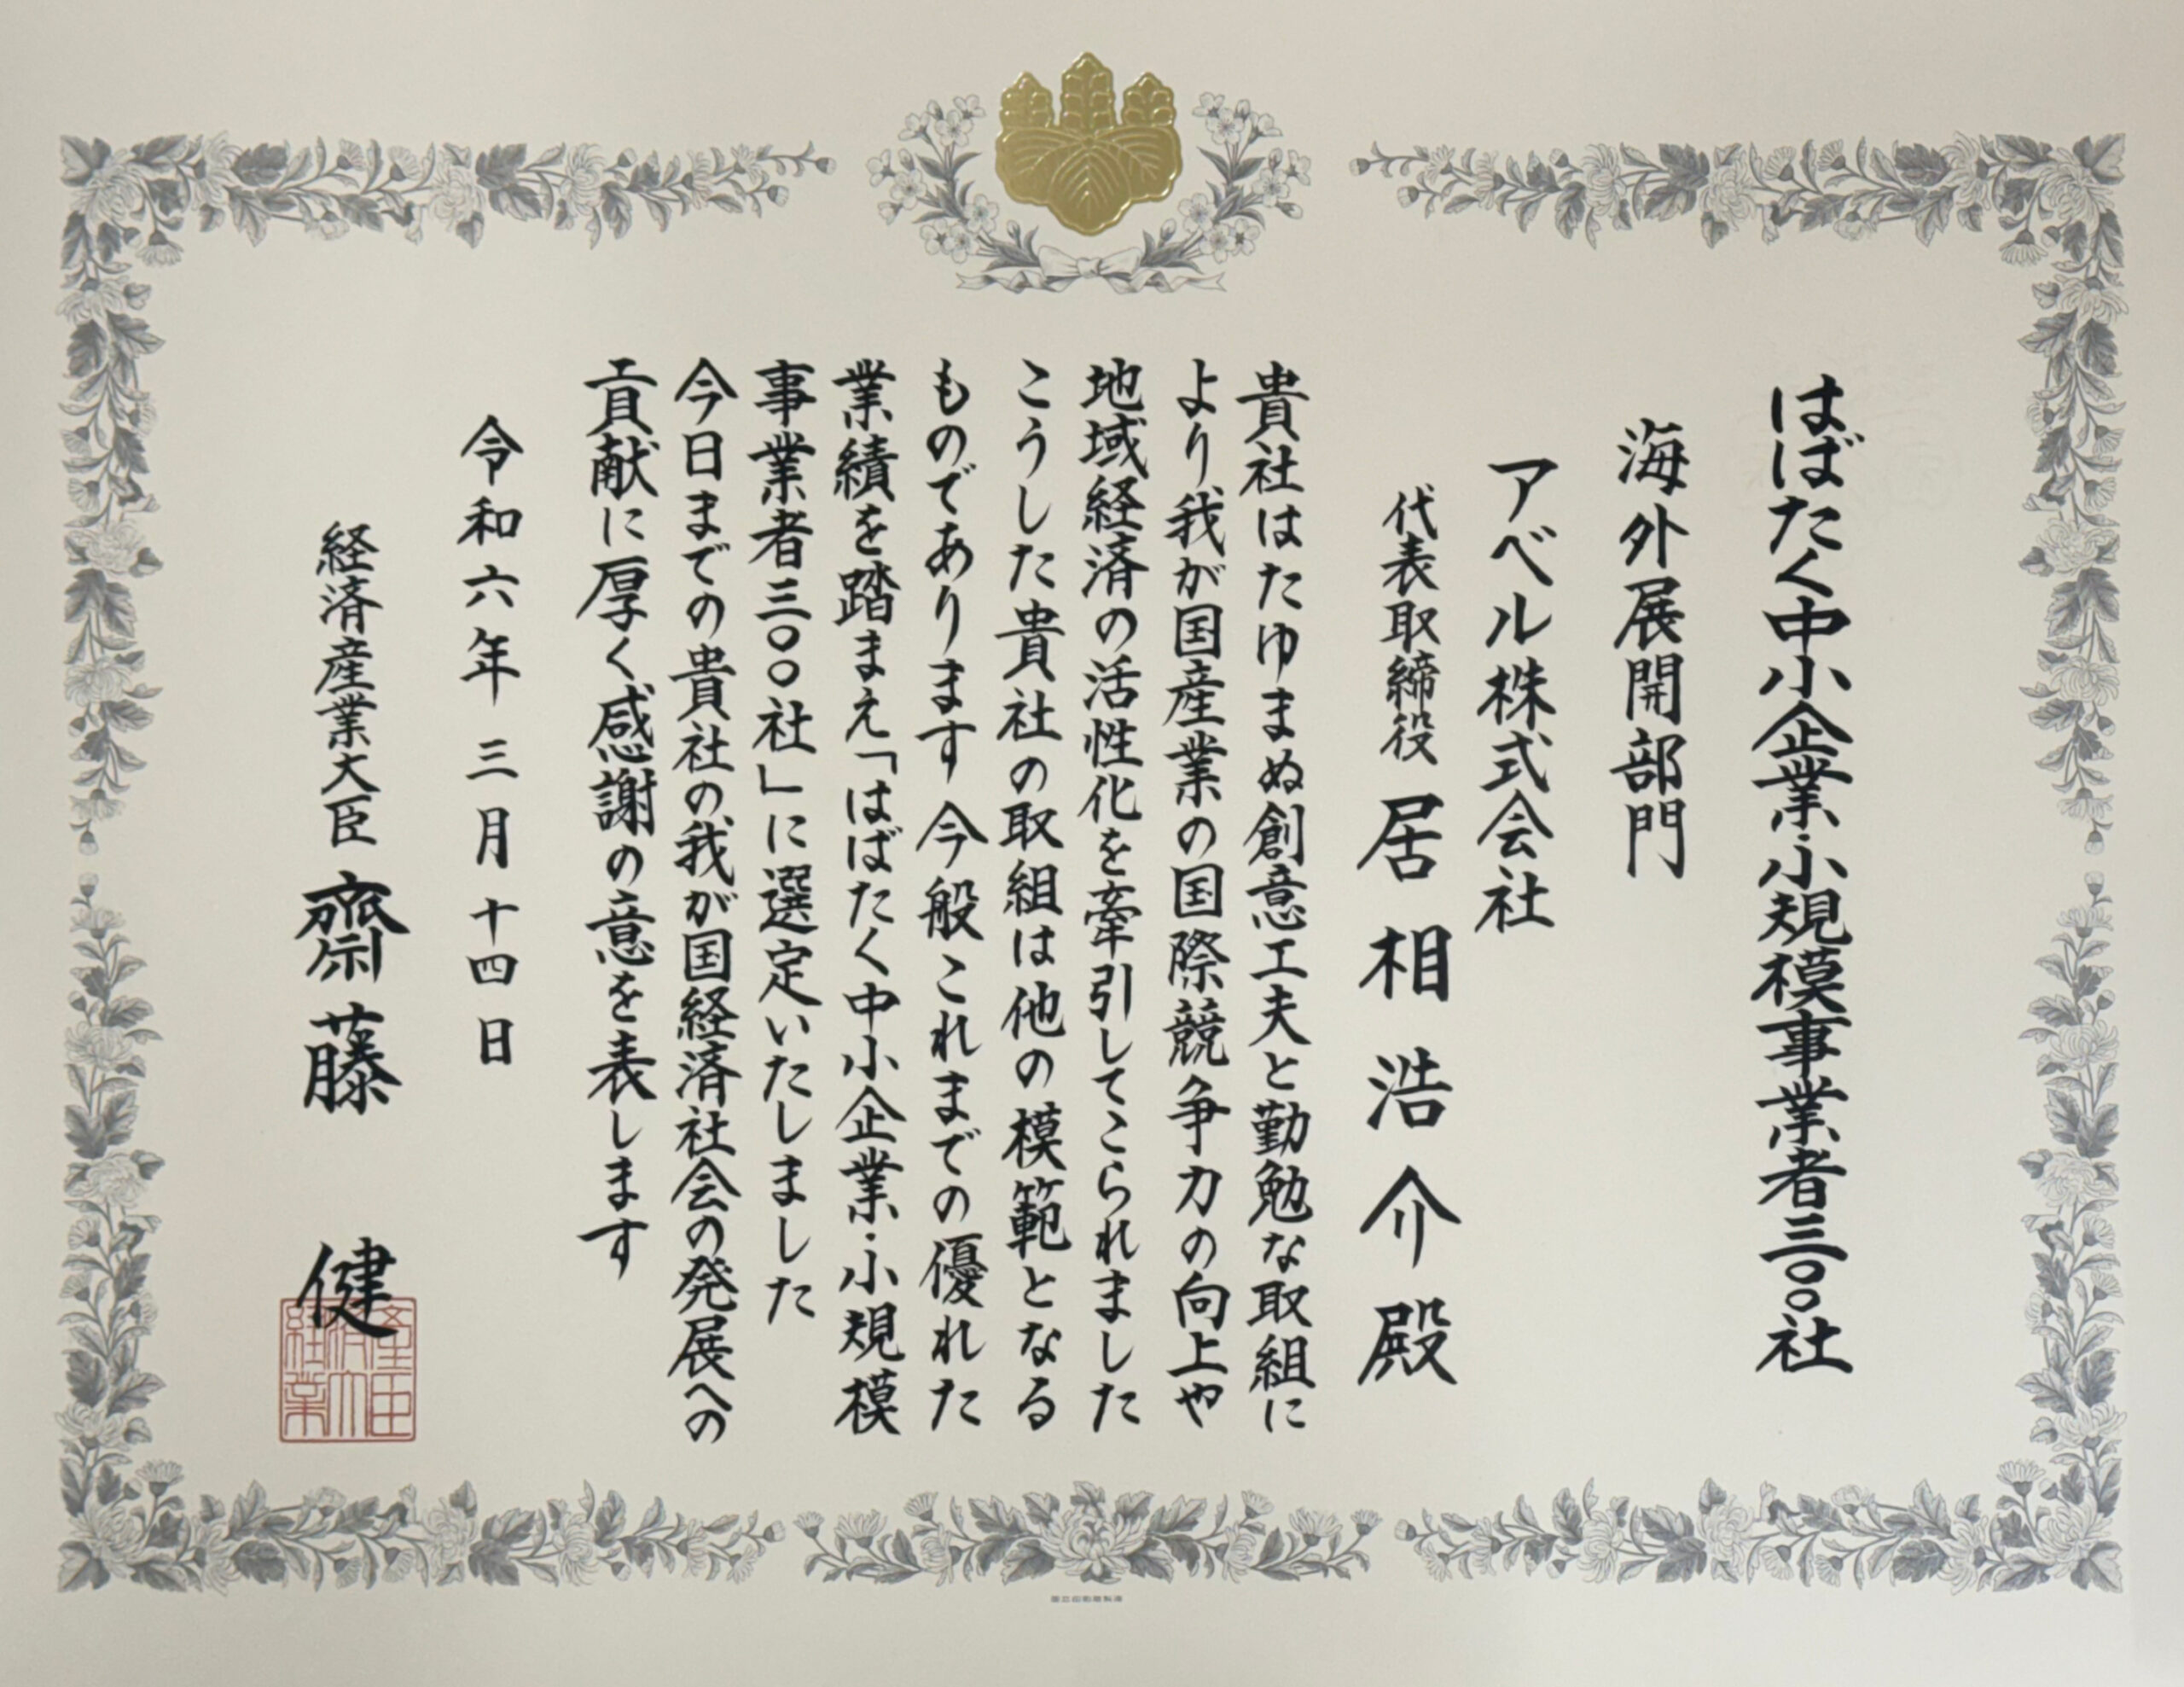 はばたく中小企業・小規模事業者三〇〇社
海外展開部門
アベル株式会社
代表取締役 居相浩介殿
貴社はたゆまぬ創意工夫と勤勉な取組に
より、我が国産業の国際競争力の向上や
地域経済の活性化を牽引してこられました
こうした貴社の取組は他の模範となる
ものであります 今般これまでの優れた
業績を踏まえ「はばたく中小企業・小規模
事業者三〇〇社」に選定いたしました
今日までの貴社の、我が国経済社会の発展への
貢献に厚く感謝の意を表します
令和六年三月十四日
経済産業大臣 齋藤 健